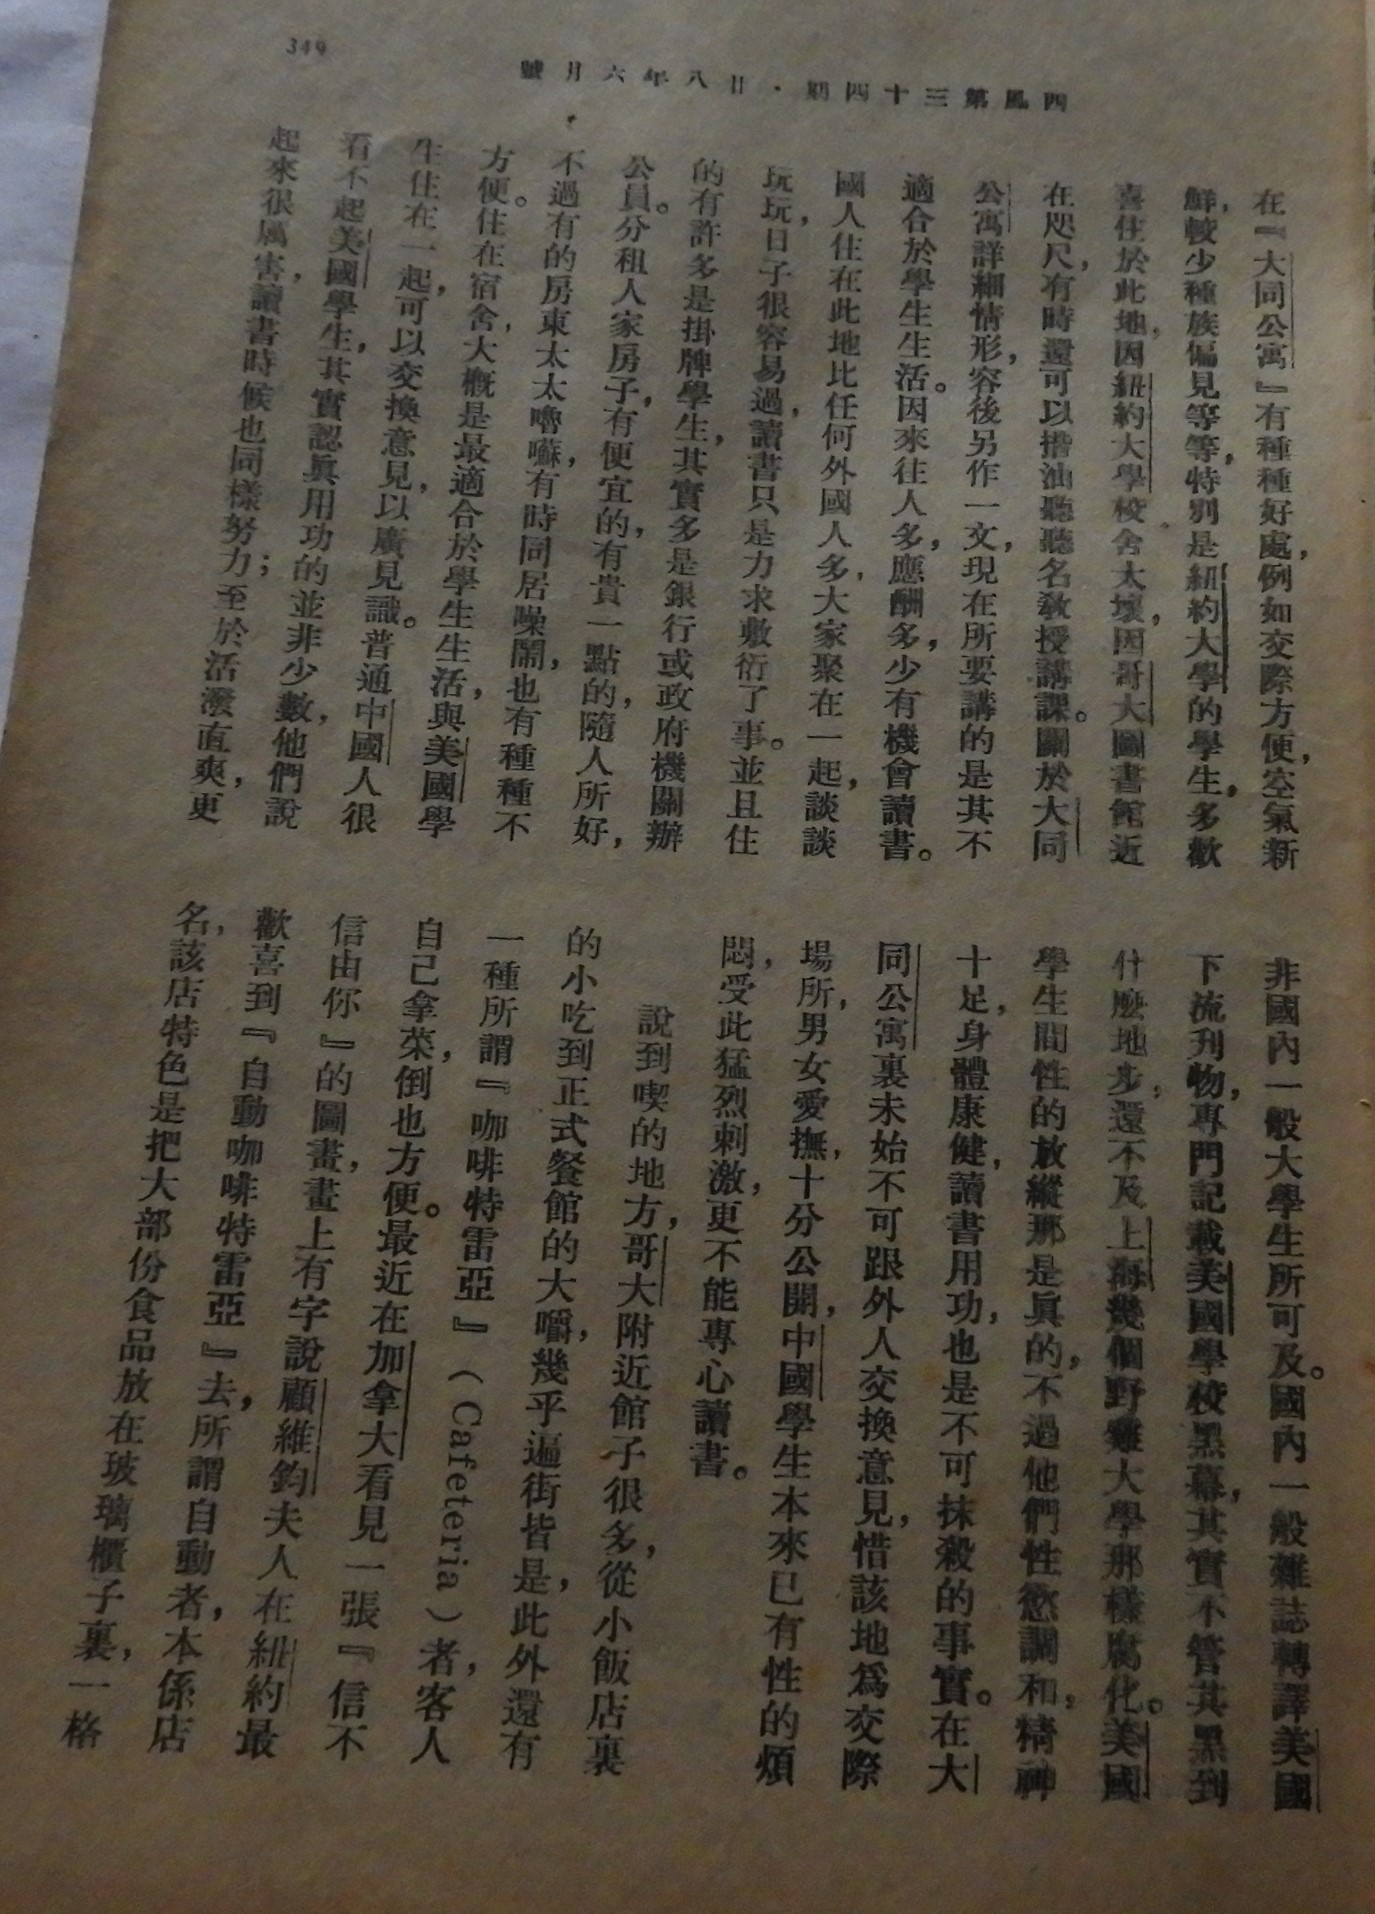 349
西風第三十四期．廿八年六月號
在『大同公寓』有種種好處，例如交際方便，空氣新
鮮，較少種族偏見等等，特別是紐約大學的學生，多歡
喜住於此地，因紐約大學校舍太壞，因哥大圖書館近
在咫尺，有時還可以揩油聽聽名敎授講課。關於大同
公寓詳細情形，容後另作一文，現在所要講的是其不
適合於學生生活。因來往人多，應酬多，少有機會讀書。
國人住在此地比任何外國人多，大家聚在一起，談談
玩玩，日子很容易過，讀書只是力求敷衍了事。並且住
的有許多是掛牌學生，其實多是銀行或政府機關辦
公員。分租人家房子，有便宜的，有貴一點的，隨人所好，
不過有的房東太太嚕囌，有時同居噪鬧，也有種種不
方便。住在宿舍，大概是最適合於學生生活，與美國學
生住在一起，可以交換意見，以廣見識。普通中國人很
看不起美國學生，其實認眞用功的並非少數，他們說
起來很厲害，讀書時候也同樣努力；至於活潑直爽，更
非國內一般大學生所可及。國內一般雜誌轉譯美國
下流刊物，專門記載美國學校黑幕，其實不管其黑到
什麼地步，還不及上海幾個野雞大學那樣腐化。美國
學生間性的放縱那是眞的，不過他們性慾調和，精神
十足，身體康健，讀書用功，也是不可抹殺的事實。在大
同公寓裏未始不可跟外人交換意見，惜該地爲交際
場所，男女愛撫，十分公開，中國學生本來已有性的煩
悶，受此猛烈刺激，更不能專心讀書。
說到喫的地方，哥大附近館子很多，從小飯店裏
的小吃到正式餐館的大嚼，幾乎遍街皆是，此外還有
一種所謂『咖啡特雷亞』（Cafeteria）者，客人
自己拿菜，倒也方便。最近在加拿大看見一張『信不
信由你』的圖畫，畫上有字說顧維鈞夫人在紐約最
歡喜到『自動咖啡特雷亞』去，所謂自動者，本係店
名，該店特色是把大部份食品放在玻璃櫃子裏，一格